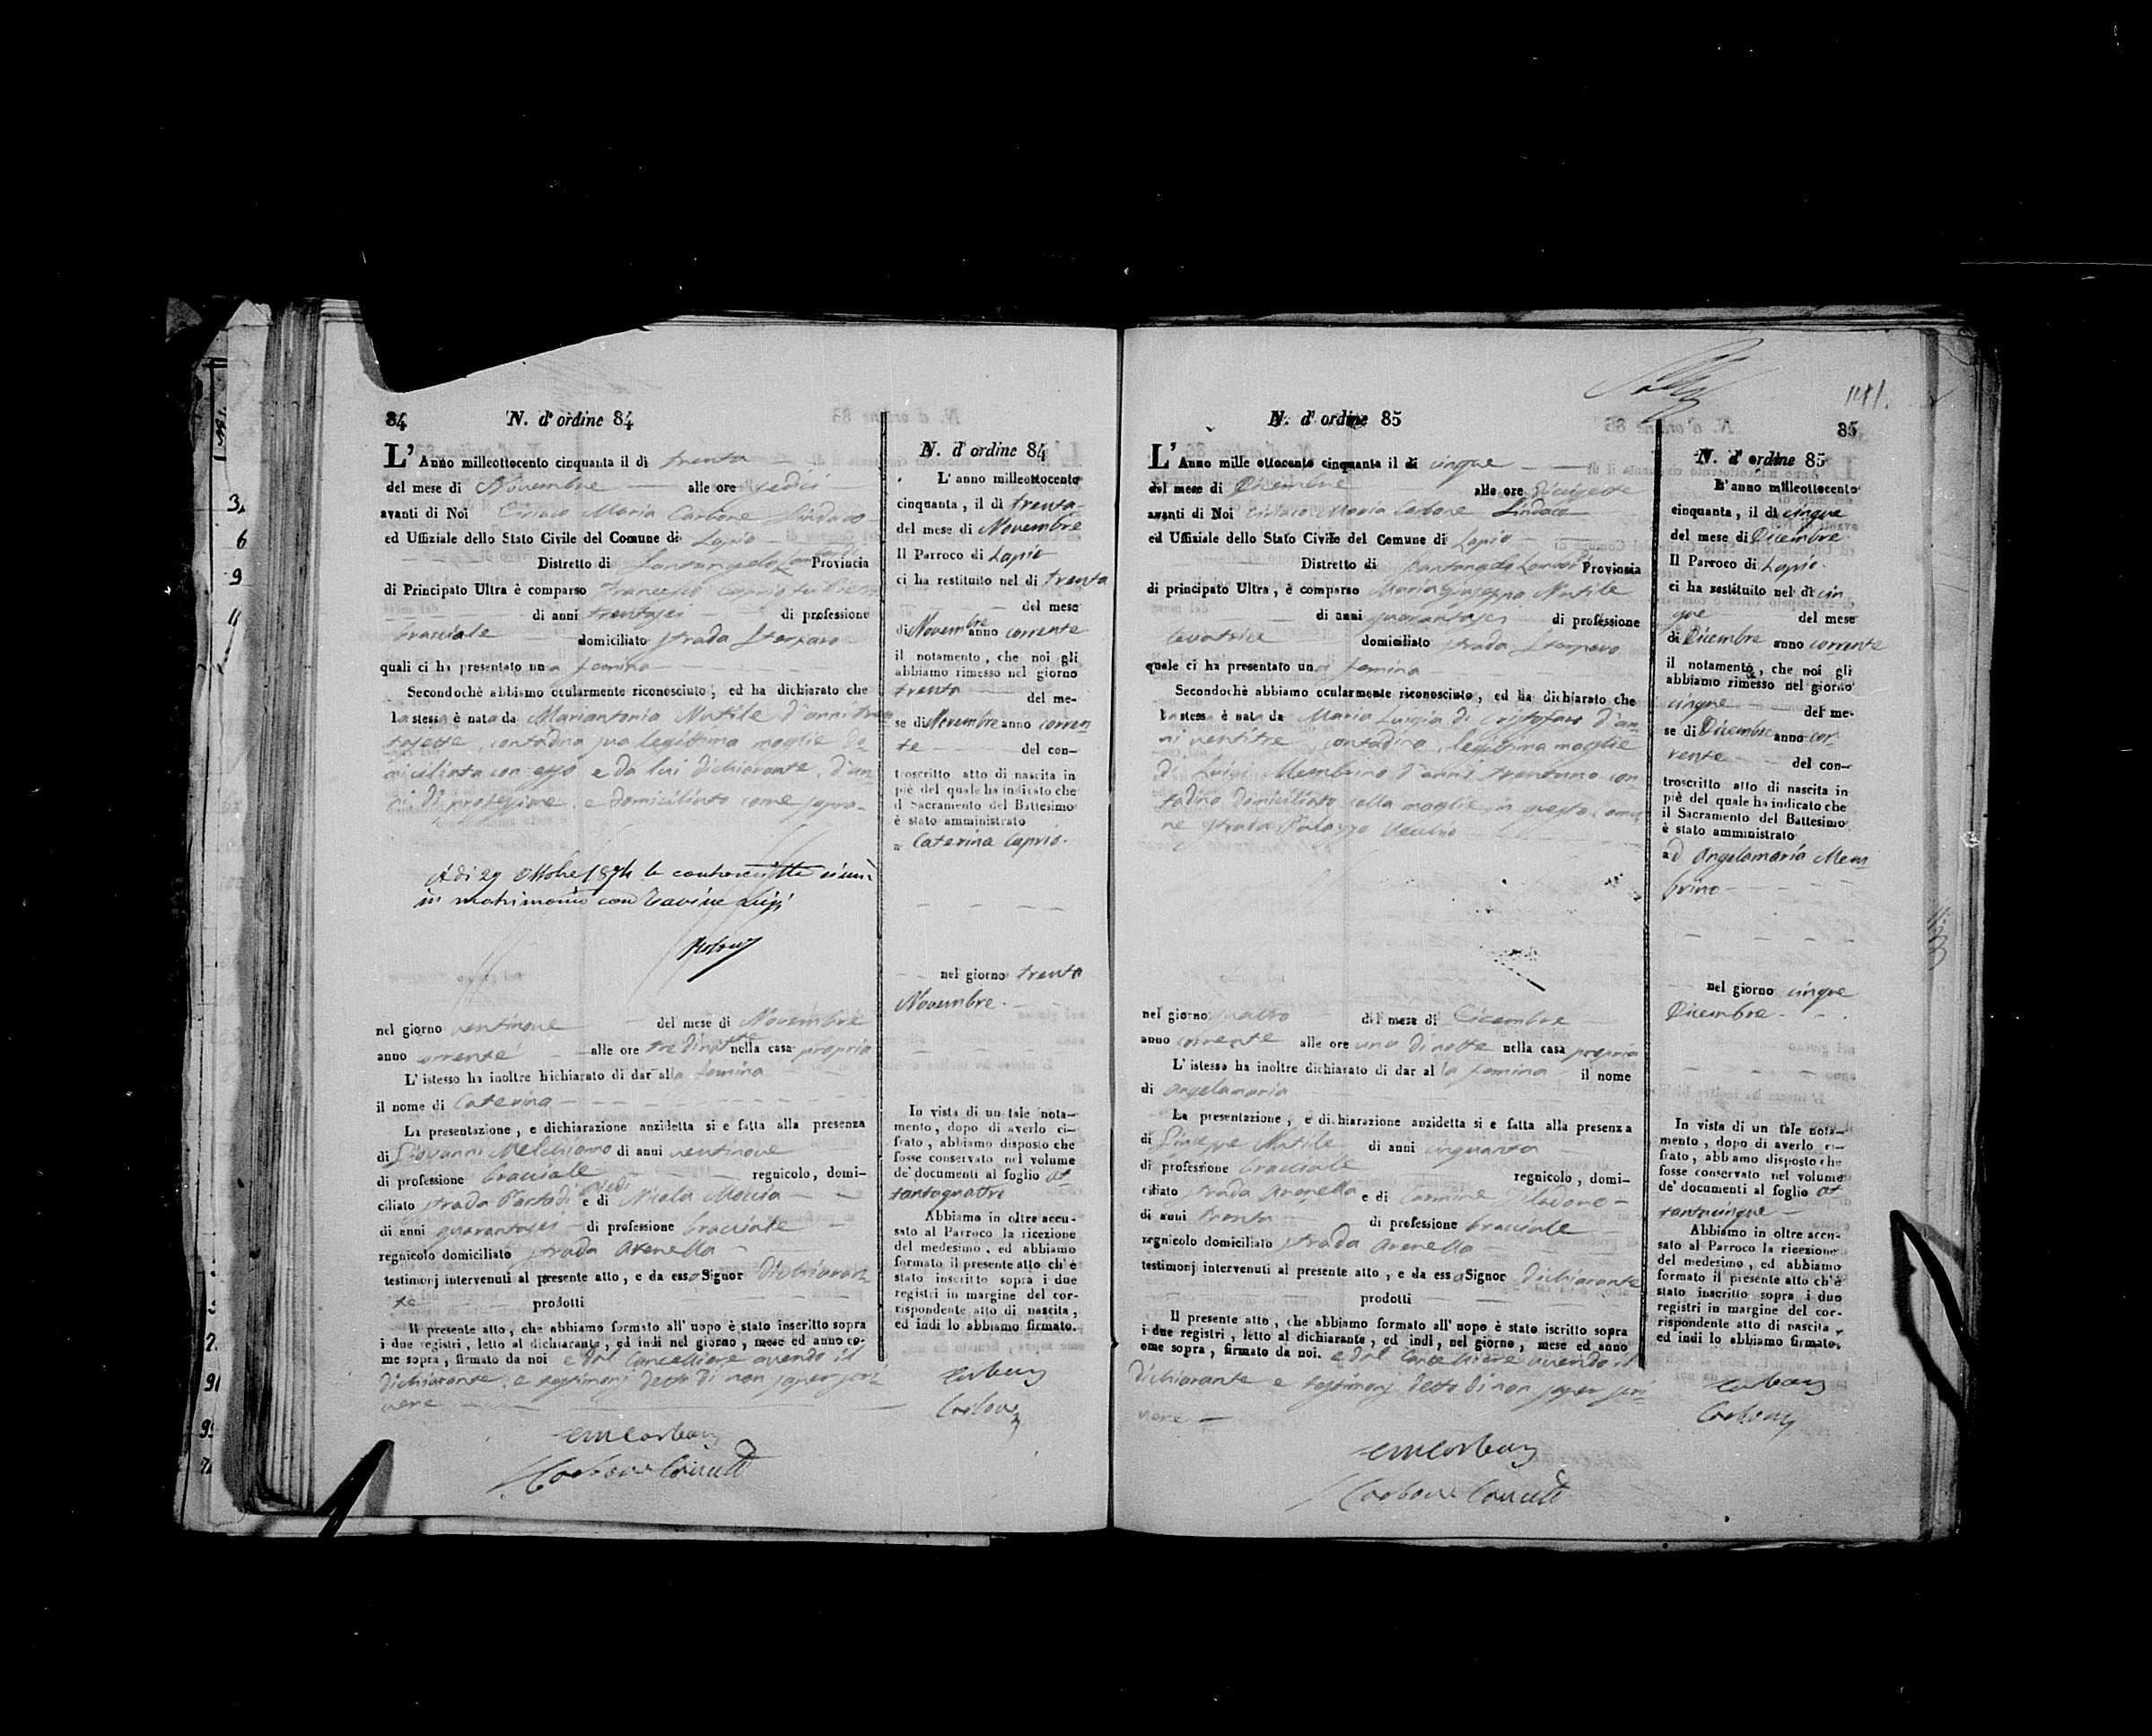 84 N. d' ordine 84
L' Anno milleottocento cinquanta il di trenta
del mese di Novembre alle ore sedici
avanti di Noi Ciriaco Maria Carbone Sindaco
ed Uffiziale dello Stato Civile del Comune di Lapio
Distretto di Santangelo Lombardi Provincia
di Principato Ultra è comparso Francesco Caprio fu
di anni trentasei di professione
bracciale domiciliato strada
quali ci ha presentato una femina
Secondochè abbiamo ocularmente riconosciuto, ed ha dichiarato che
la stessa è nata da Mariantonia Nutile d'anni tren
tasette, contadina sua legittima moglie do
miciliata con esso e da lui dichiarante, d'an
ni, di professione, e domiciliato come sopra
A di 29 Ottobre 1874 la controscritta si unì
in matrimonio con Luigi
nel giorno ventinove del mese di Novembre
anno corrente alle ore tre di notte nella casa propria
L' istesso ha inoltre hichiarato di dar alla femina
il nome di Caterina
La presentazione, e dichiarazione anzidetta si e fatta alla presenza
di Giovanni Melchionno di anni ventinove
di professione bracciale regnicolo, domi-
ciliato strada e di Nicola Moccia
di anni quarantasei di professione bracciale
regnicolo domiciliato strada Arenella
testimonj intervenuti al presente atto, e da esso Signor dichiaran
te prodotti
Il presente atto, che abbiamo formato all' uopo è stato inscritto sopra
i due registri, letto al dichiarante, ed indi nel giorno, mese ed anno co-
me sopra, firmato da noi e dal Cancelliere avendo il
dichiarante, e testimonj detto di non saper scri
vere
Carbone
N. d' ordine 84
L' anno milleottocento
cinquanta, il di trenta
del mese di Novembre
Il Parroco di Lapio
ci ha restituito nel di trenta
del mese
di Novembre anno corrente
il notamento, che noi gli
abbiamo rimesso nel giorno
trenta del me-
se di Novembre anno corren
te del con-
troscritto atto di nascita in
piè del quale ha indicato che
il Sacramento del Battesimo
è stato amministrato
a Caterina Caprio.
nel giorno trenta
Novembre.
In vista di un tale nota-
mento, dopo di averlo ci-
frato, abbiamo disposto che
fosse conservato nel volume
de' documenti al foglio ot
tantaquattro
Abbiamo in oltre accu-
sato al Parroco la ricezione
del medesimo, ed abbiamo
formato il presente atto ch' è
stato inscritto sopra i due
registri in margine del cor-
rispondente atto di nascita,
ed indi lo abbiamo firmato.
Carbone
N. d' ordine 85
L' Anno mille ottocento cinquanta il di cinque
del mese di Dicembre alle ore diciassette
avanti di Noi Ciriaco Maria Carbone Sindaco
ed Uffiziale dello Stato Civile del Comune di Lapio
Distretto di Santangelo Lombardi Provincia
di principato Ultra, è comparso Mariagiuseppa Nutile
di anni quarantasei di professione
levatrice domiciliato strada
quale ci ha presentato una femina
Secondochè abbiamo ocularmente riconosciuto, ed ha dichiarato che
la stessa è nata da Maria Luigia di Cristofaro d'an
ni ventitre contadina, legittima moglie
di Luigi Membrino d'anni trentuno con
tadino domiciliato colla moglie in questo Comu
ne strada Palazzo Vecchio
nel giorno quattro del mese di Dicembre
anno corrente alle ore una di notte nella casa propria
L' istessa ha inoltre dichiarato di dar alla femina il nome
di Angelamaria
La presentazione, e dichiarazione anzidetta si e fatta alla presenza
di Giuseppe Nutile di anni cinquanta
di professione bracciale regnicolo, domi-
ciliato strada Arenella e di Carmine
di anni trenta di professione bracciale
regnicolo domiciliato strada Arenella
testimonj intervenuti al presente atto, e da essa Signor dichiarante
prodotti
Il presente atto, che abbiamo formato all' uopo è stato iscritto sopra
i due registri, letto al dichiarante, ed indi, nel giorno, mese ed anno
ome sopra, firmato da noi. e dal Cancelliere avendo il
dichiarante e testimonj detto di non saper scri
vere
Carbone
85
N. d' ordine 85
L' anno milleottocento
cinquanta, il di cinque
del mese di Dicembre
Il Parroco di Lapio.
ci ha restituito nel di cin
que del mese
di Dicembre anno corrente
il notamento, che noi gli
abbiamo rimesso nel giorno
cinque del me-
se di Dicembre anno cor
rente del con-
troscritto atto di nascita in
piè del quale ha indicato che
il Sacramento del Battesimo
è stato amministrato
ad Angelamaria Mem
brino
nel giorno cinque
Dicembre.
In vista di un tale nota-
mento, dopo di averlo ci-
frato, abbiamo disposto che
fosse conservato nel volume
de' documenti al foglio ot
tantacinque
Abbiamo in oltre accu-
sato al Parroco la ricezione
del medesimo, ed abbiamo
formato il presente atto ch' è
stato inscritto sopra i due
registri in margine del cor-
rispondente atto di nascita,
ed indi lo abbiamo firmato.
Carbone